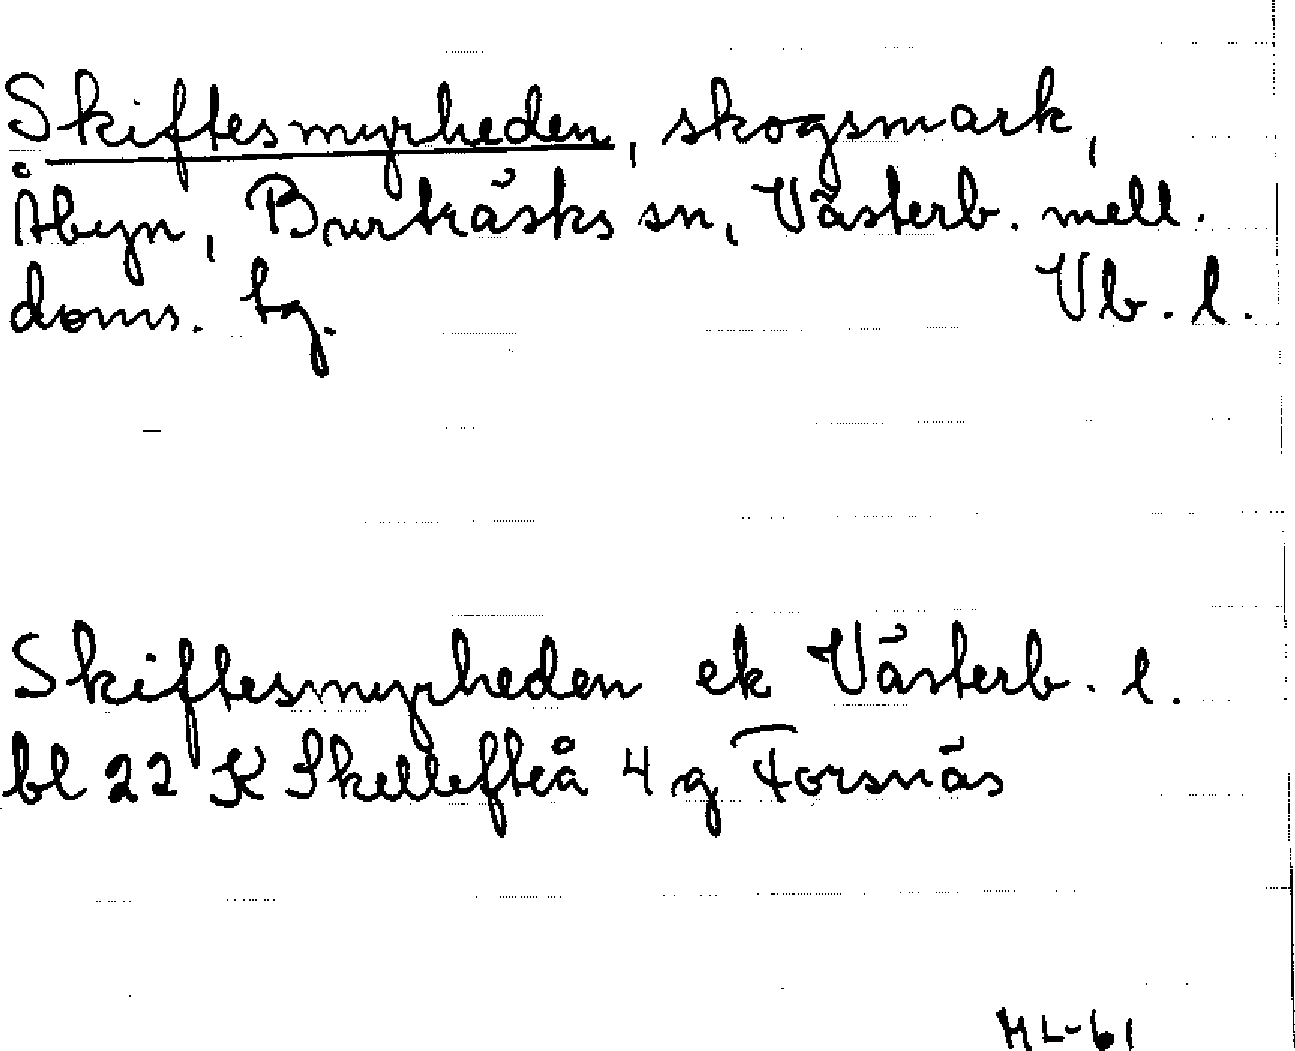 Skiftesmyrheden, skogsmark,
Åbyn, Burträsks sn, Västerb. mell.
doms. tg. Vb. l.
Skiftesmyrheden ek Västerb. l.
bl 22 K Skellefteå 4 g Forsnäs
ML-61